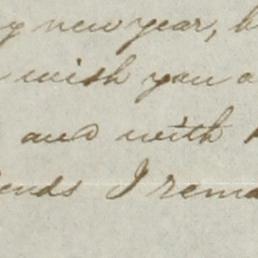 y new year, b
wish you a
and with
ends I rema